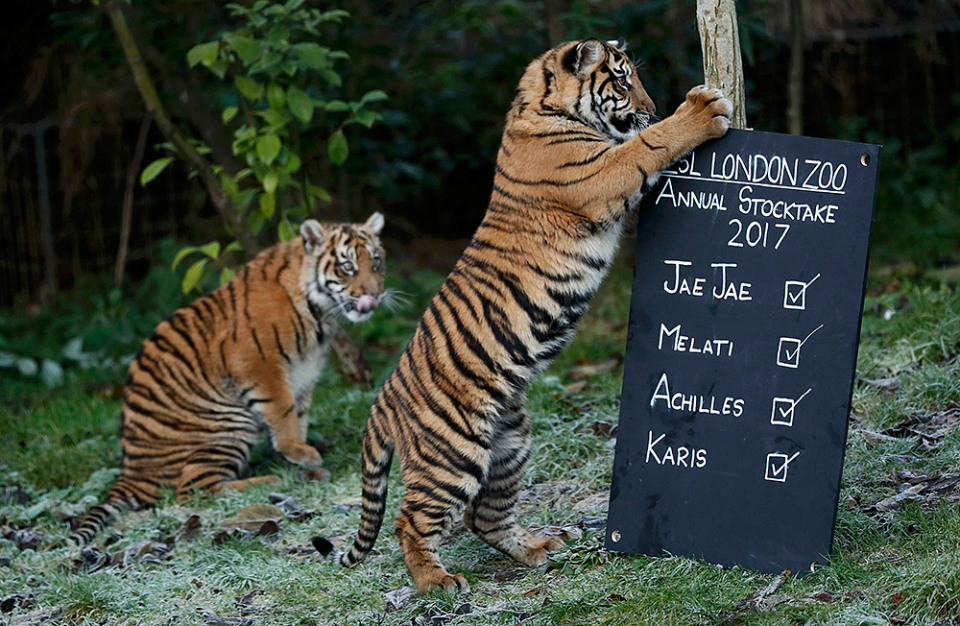 ZSL LONDON ZOO
ANNUAL STOCKTAKE
2017
JAE JAE
MELATI
ACHILLES
KARIS